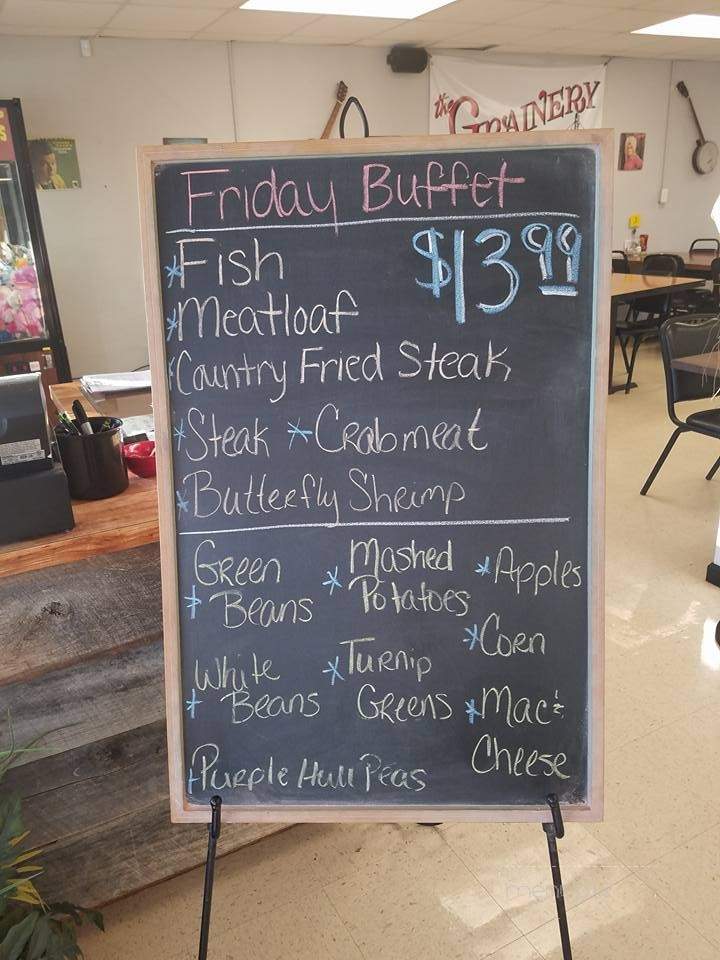 the GRAINERY
Friday Buffet
*Fish $13.99
*Meatloaf
*Country Fried Steak
*Steak *Crabmeat
*Butterfly Shrimp
*Green Beans
*Mashed Potatoes
*Apples
*Corn
*White Beans
*Turnip Greens
*Mac & Cheese
*Purple Hull Peas